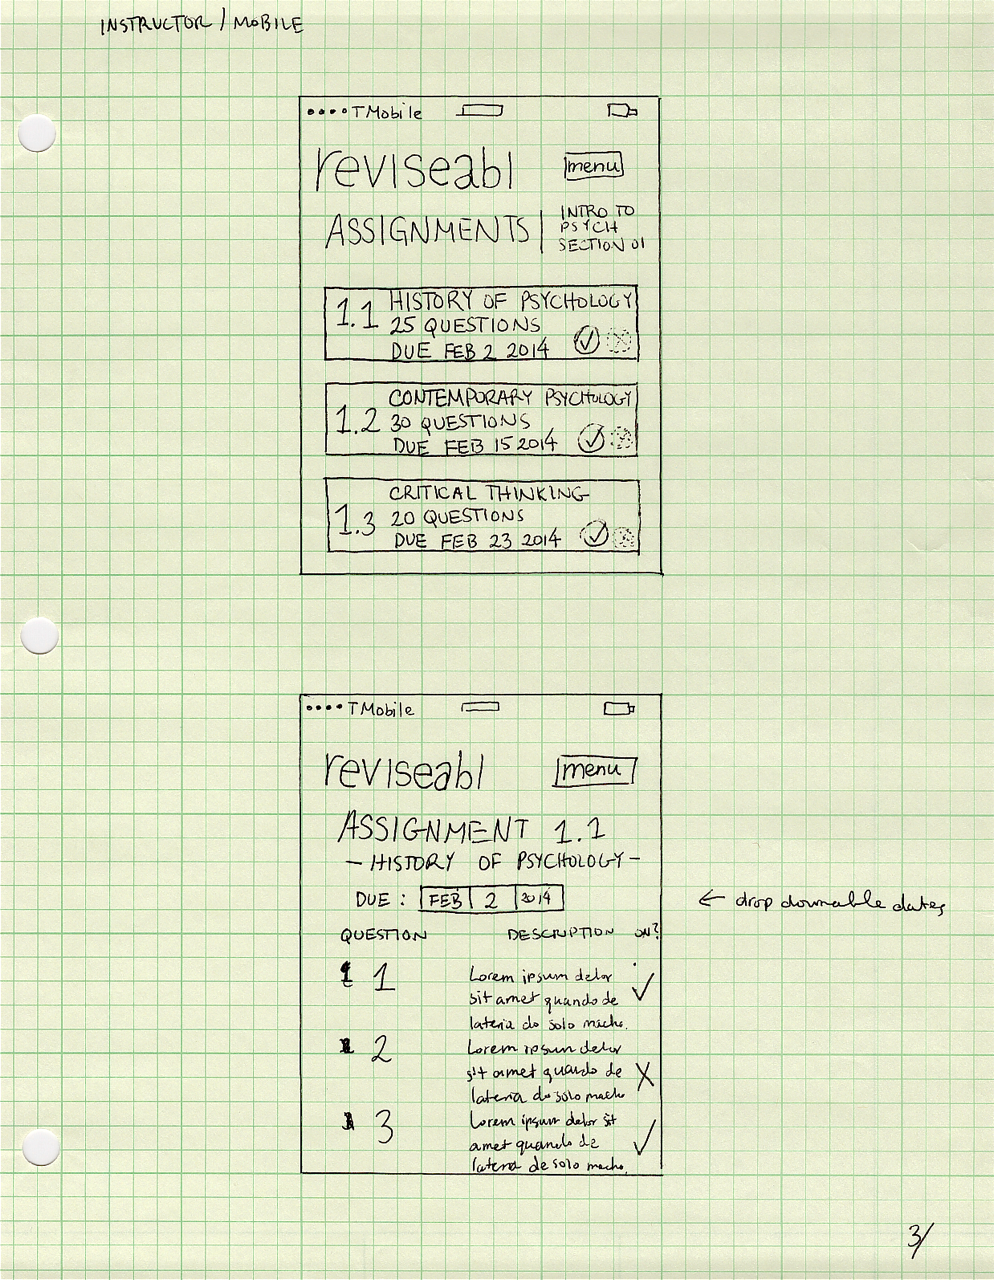 INSTRUCTOR / MOBILE
TMobile
reviseabl
menu
ASSIGNMENTS
INTRO TO
PSYCH
SECTION 01
1.1
HISTORY OF PSYCHOLOGY
25 QUESTIONS
DUE FEB 2 2014
1.2
CONTEMPORARY PSYCHOLOGY
30 QUESTIONS
DUE FEB 15 2014
1.3
CRITICAL THINKING
20 QUESTIONS
DUE FEB 23 2014
TMobile
reviseabl
menu
ASSIGNMENT 1.1
- HISTORY OF PSYCHOLOGY -
DUE : FEB 2 2014
← drop downable dates
QUESTION DESCRIPTION ON?
1
Lorem ipsum delor
sit amet quando de
lateria do solo macho.
2
Lorem ipsum delor
sit amet quando de
lateria do solo macho
3
Lorem ipsum delor sit
amet quando de
lateria de solo macho.
3/